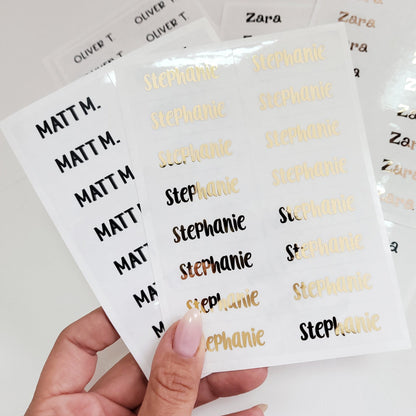 OLIVER T.
OLIVER T.
OLIVER T.
Zara
Zara
Zara
Zara
Zara
Zara
Zara
Zara
Zara
MATT M.
MATT M.
MATT M.
MATT M.
MATT M.
MATT
Stephanie Stephanie
Stephanie Stephanie
Stephanie Stephanie
Stephanie Stephanie
Stephanie Stephanie
Stephanie Stephanie
Stephanie Stephanie
Stephanie Stephanie